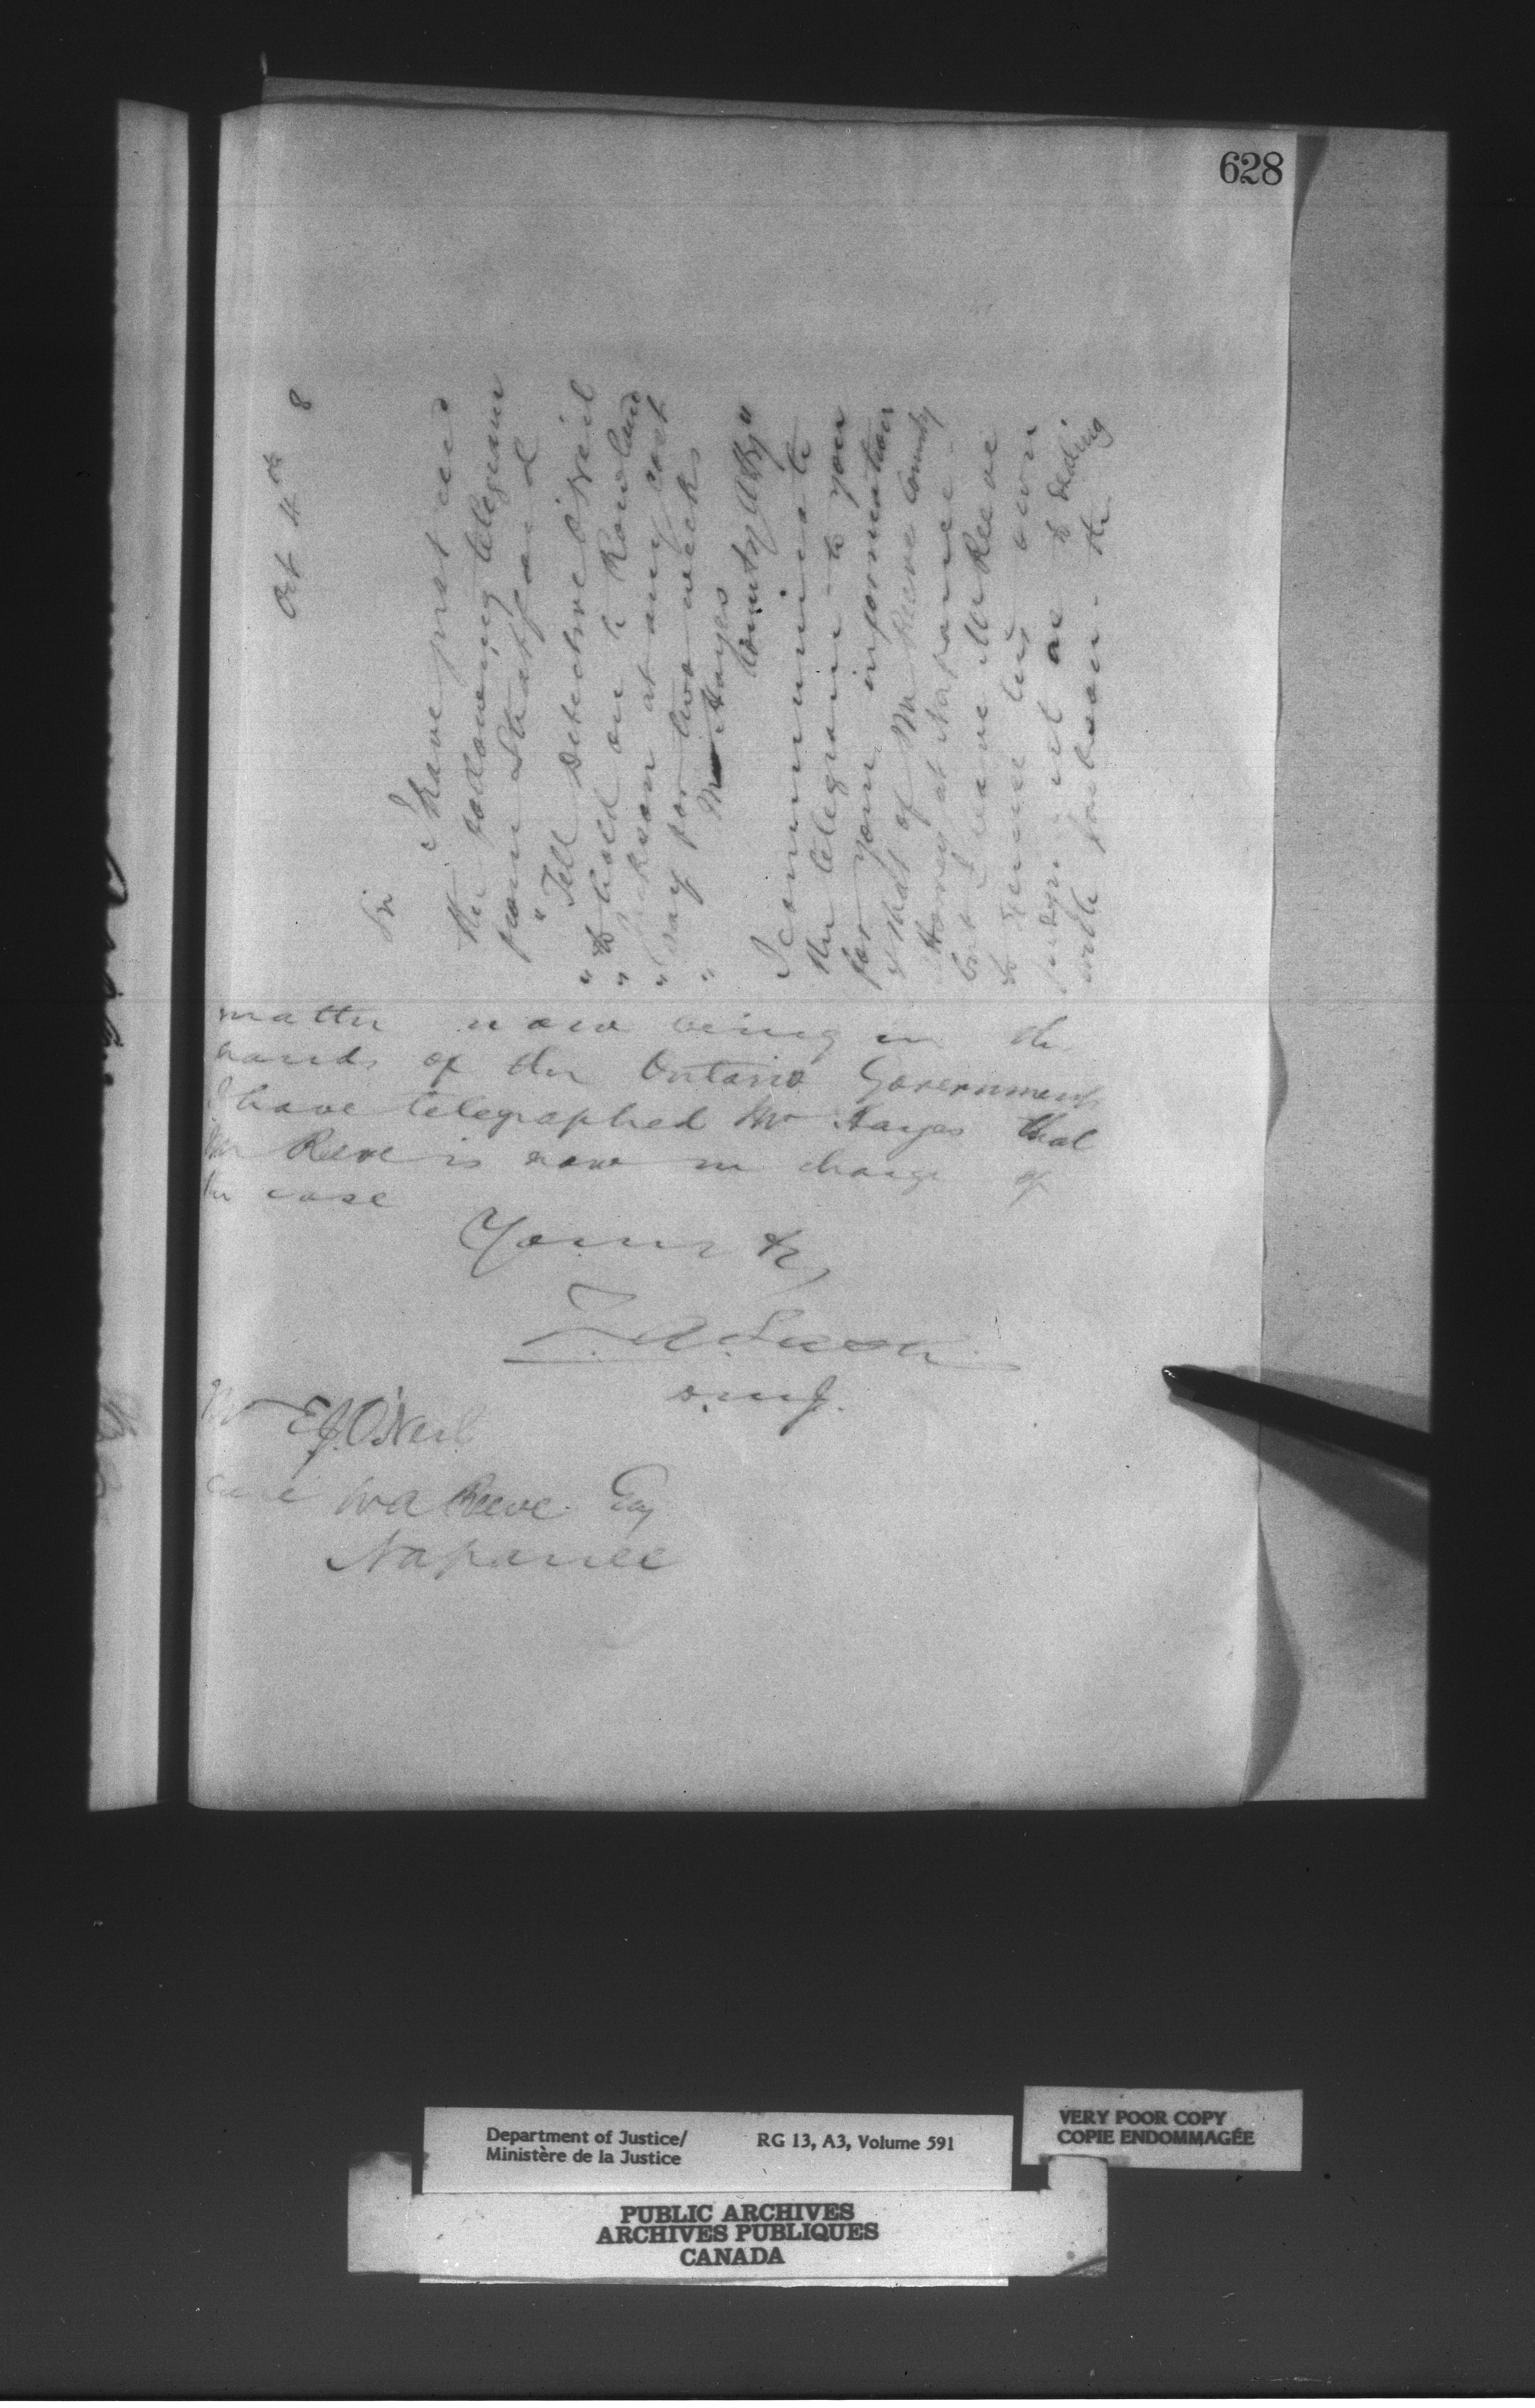 628
Oct 4th 8
Sir
I have just recd
the following telegram
from Stratford
"Tell Detective O'Neil
" to hold on to Rowland
" Jackson at any cost
" say for two weeks
" Mr Hayes
County Atty"
I communicate
the telegram to you
for your information
& that of Mr Reeve County
Attorney at Napanee
but I leave Mr Reeve
to exercise his own
judgment as to
with the
matter now being in the
hands of the Ontario Government
I have telegraphed Mr Hayes that
Mr Reeve is now in charge of
the case
Yours &c,
Z. A. Lash
D.M.J.
Mr E.J. O'Neil
Care W A Reeve Esq
Napanee
Department of Justice/
Ministère de la Justice
RG 13, A3, Volume 591
VERY POOR COPY
COPIE ENDOMMAGÉE
PUBLIC ARCHIVES
ARCHIVES PUBLIQUES
CANADA